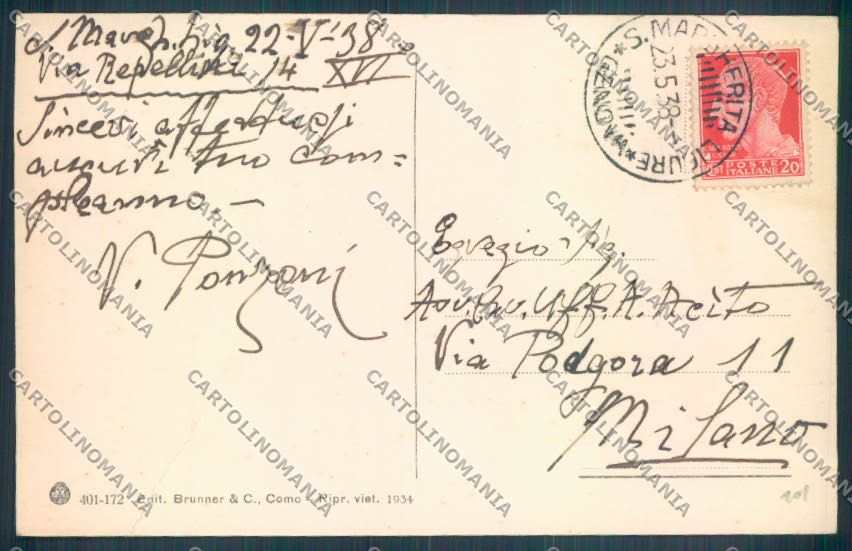 S. Margh. Lig. 22-V-'38
Via Repellini 14 XVI
Sinceri affettuosi
auguri tuo com=
pleanno. —
V. Ponzoni
S. MARGHERITA LIGURE * (GENOVA) *
23.5.38
POSTE
ITALIANE 20
Egregio Sig.
Avv. Cav. Uff. A. Acito
Via Podgora 11
Milano
401-172 Edit. Brunner & C., Como - Ripr. viet. 1934
201
CARTOLINOMANIA